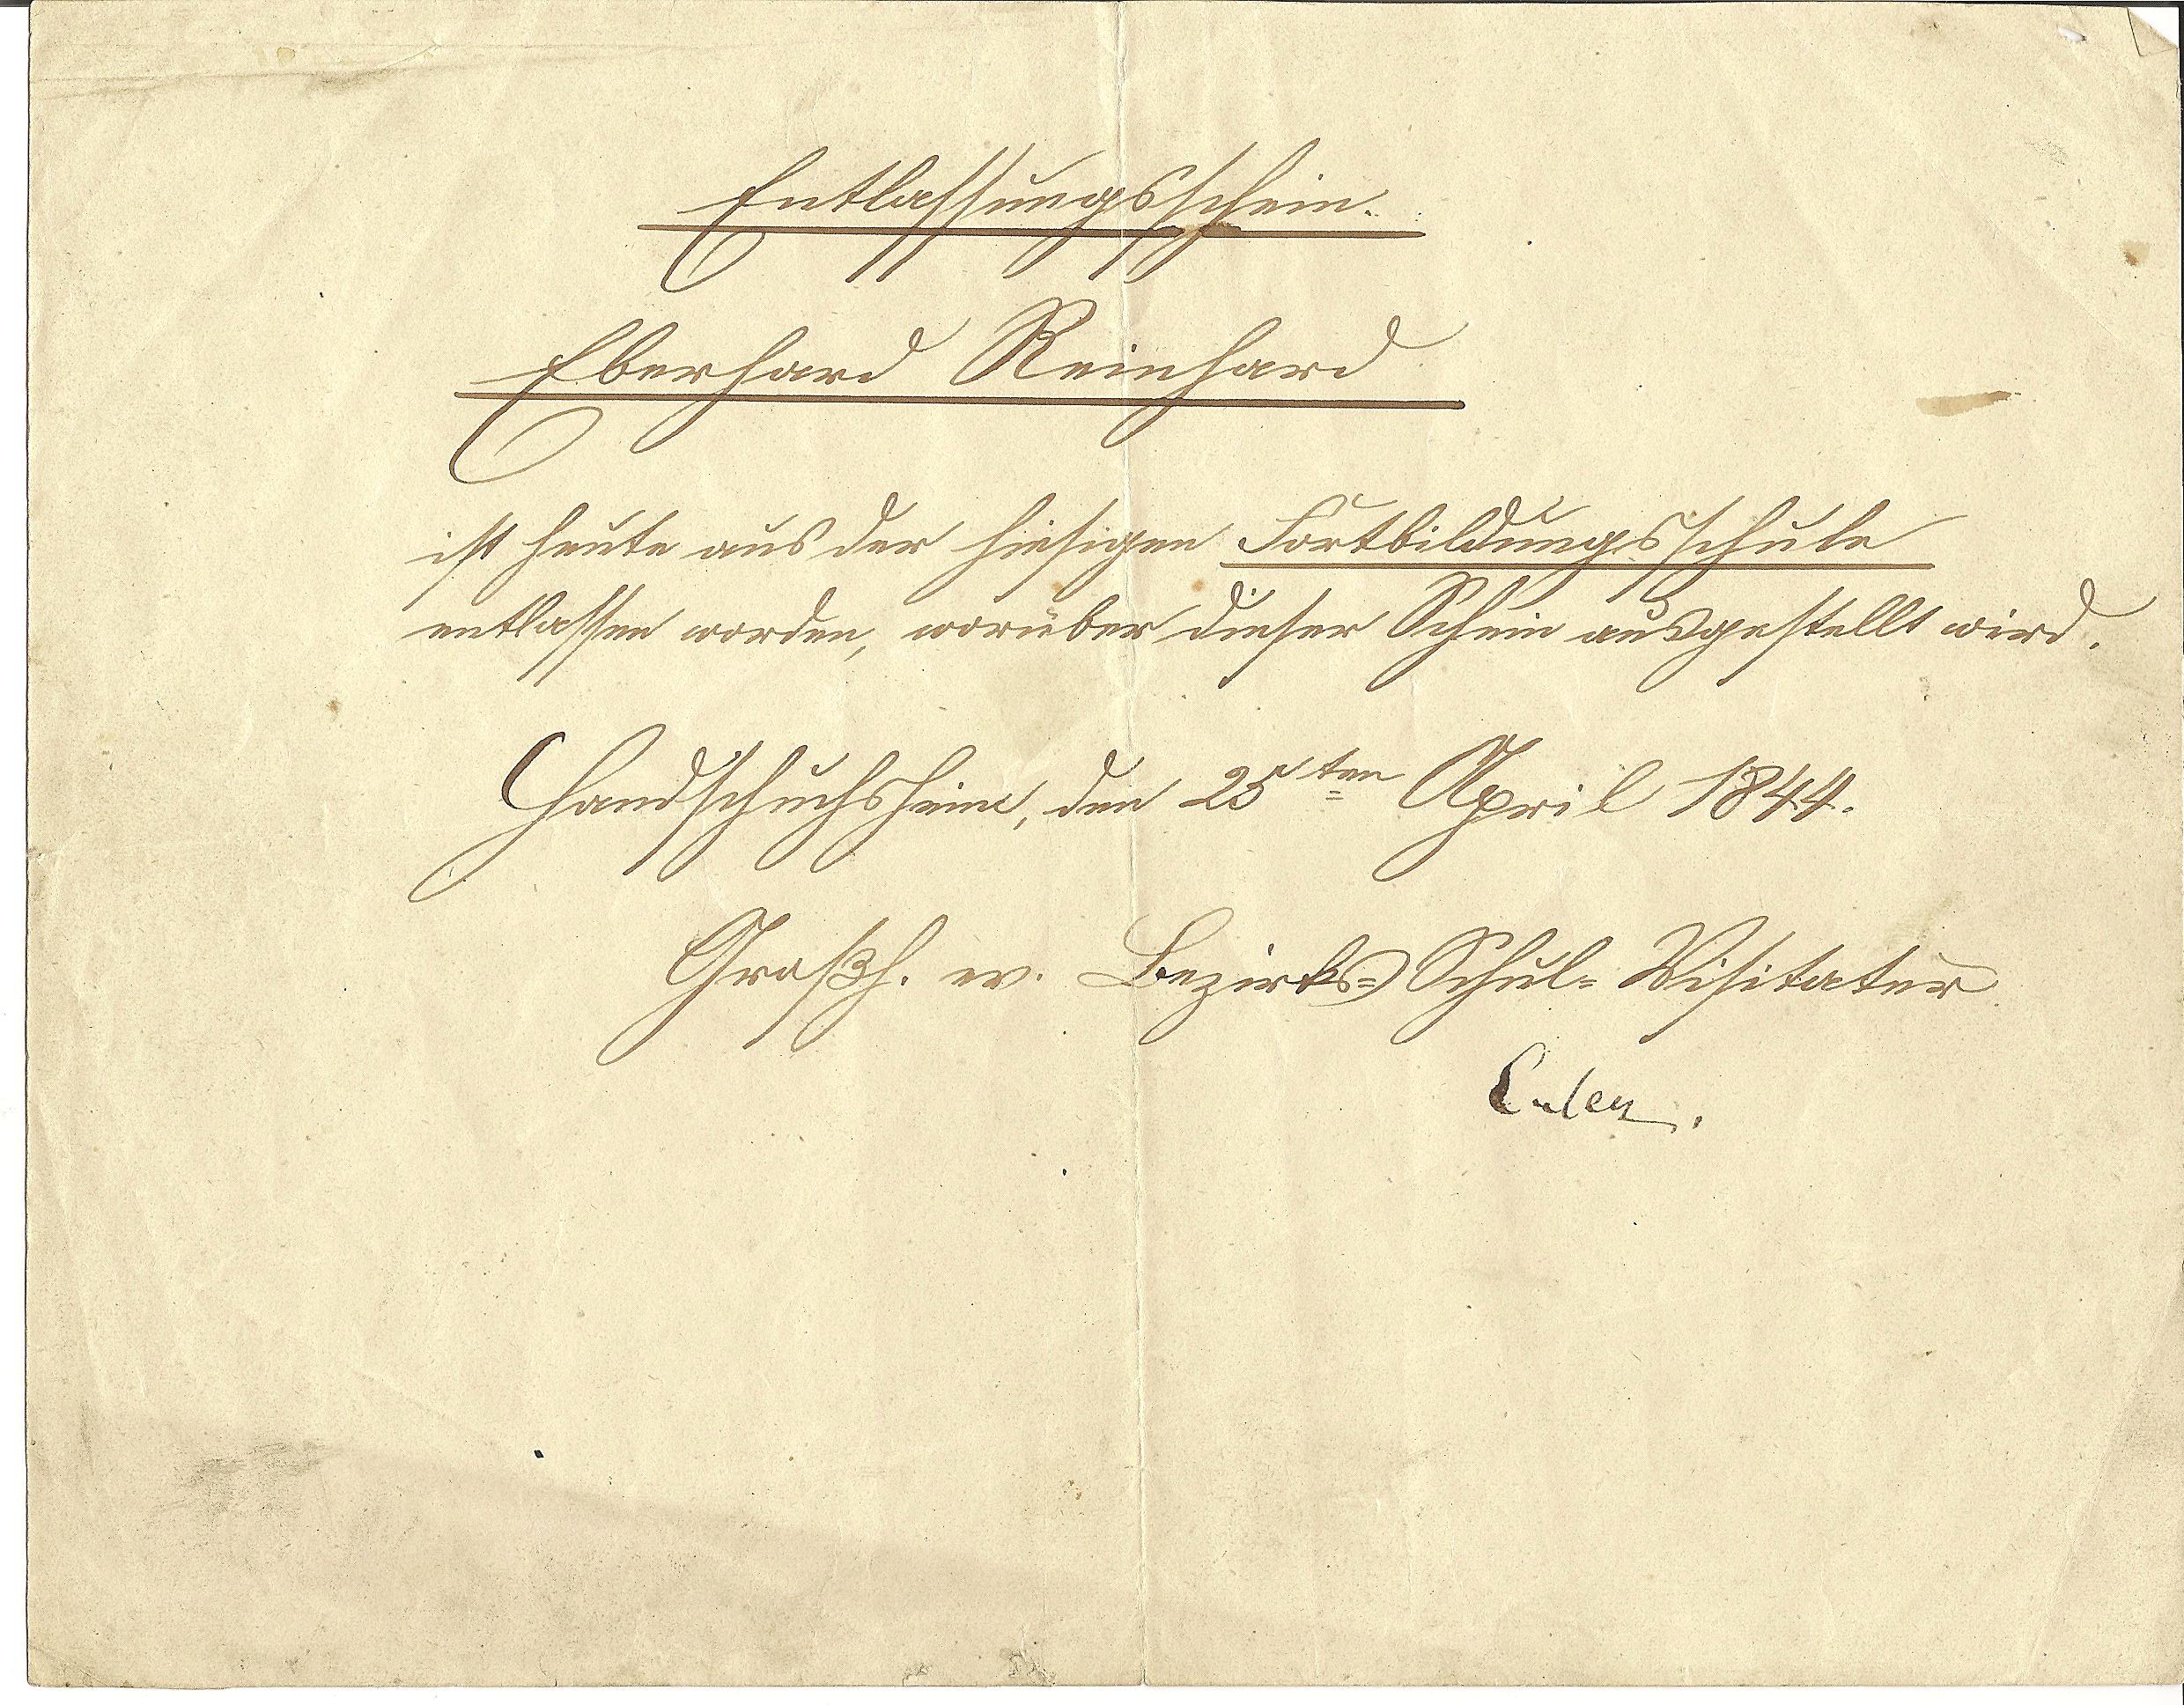 Entlassungsschein.
Eberhard Reinhard
ist heute aus der hiesigen Fortbildungsschule
entlassen worden, worüber dieser Schein ausgestellt wird.
Handschuchsheim, den 25ten April 1844.
Großh. ev. Bezirks- Schul- Visitatur